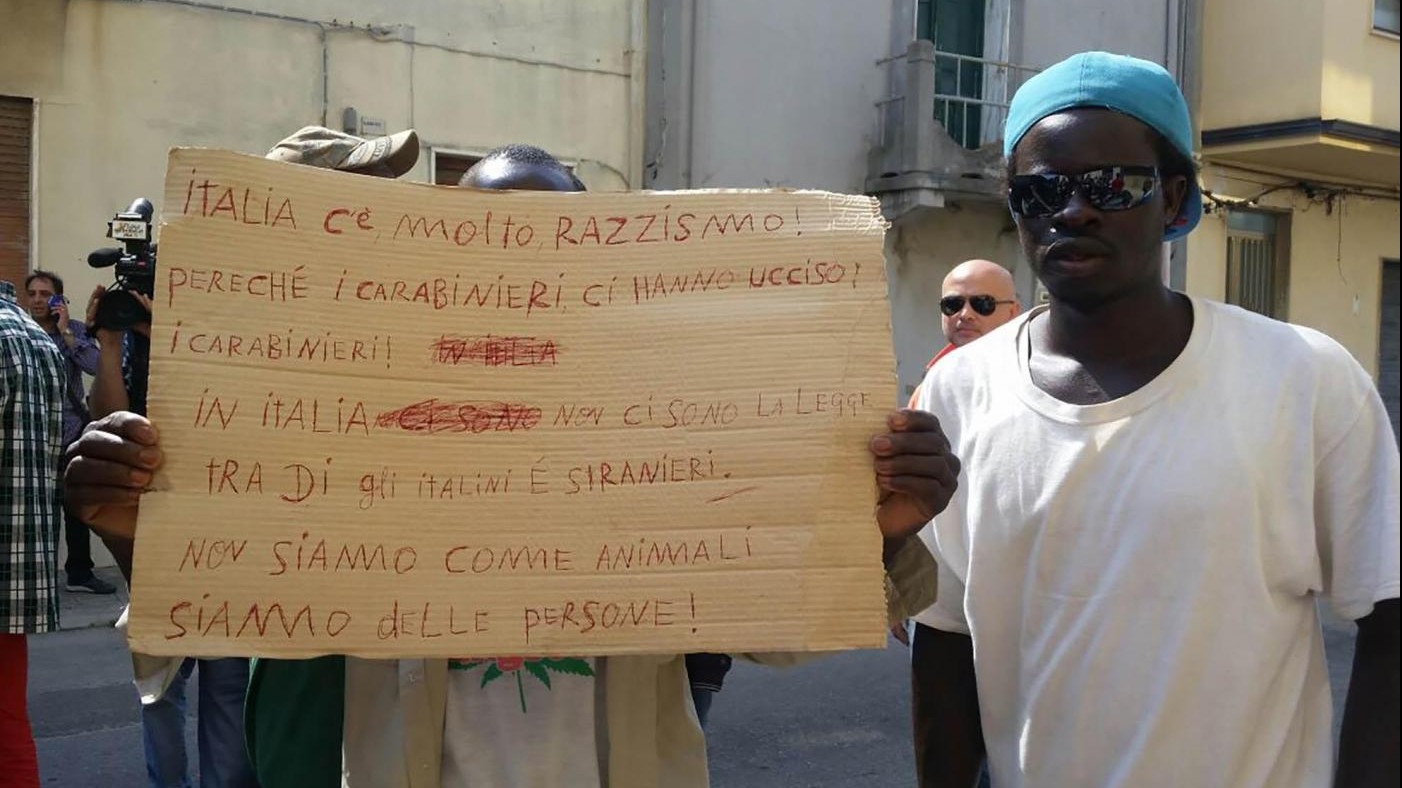 iTALiA C'è, molto, RAZZiSMO!
PERECHÉ i CARABiNiERi, Ci HANNO UCCiSO!
i CARABiNiERi!
iN iTALiA NON Ci SONO LA LEGGE
tRA Di gli iTALiNi É STRANiERi.
NON SiAMO COME ANiMALi
SiAMO dELLE PERSONE!